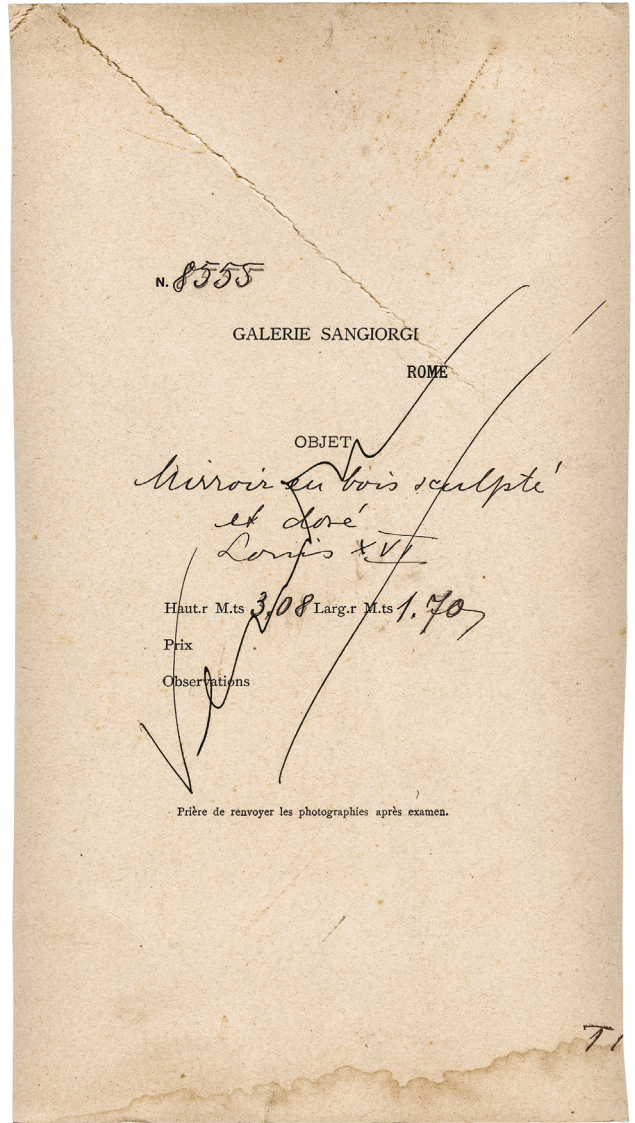 N. 8555
GALERIE SANGIORGI
ROME
OBJET
Mirroir en bois sculpté
et doré
Louis XVI
Haut.r M.ts 3,08 Larg.r M.ts 1.70
Prix
Observations
Prière de renvoyer les photographies après examen.